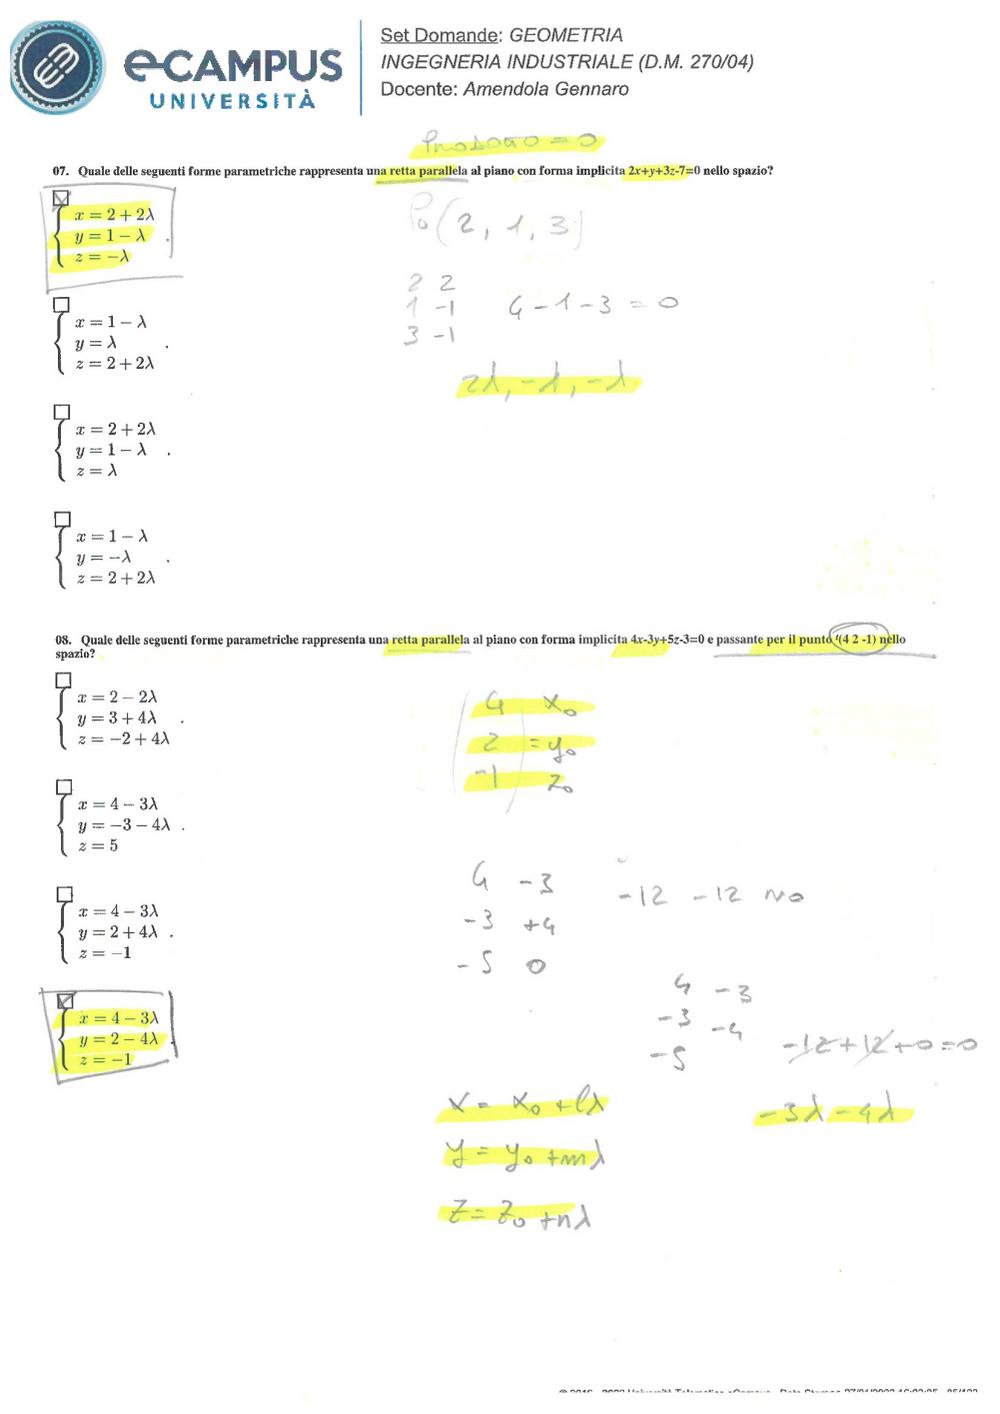 e-CAMPUS
UNIVERSITÀ
Set Domande: GEOMETRIA
INGEGNERIA INDUSTRIALE (D.M. 270/04)
Docente: Amendola Gennaro
PRODOTTO = 0
07. Quale delle seguenti forme parametriche rappresenta una retta parallela al piano con forma implicita 2x+y+3z-7=0 nello spazio?
x = 2 + 2λ
y = 1 − λ .
z = −λ
P₀ (2, 1, 3)
2 2
1 -1
3 -1
4 - 1 - 3 = 0
2λ, -λ, -λ
x = 1 − λ
y = λ .
z = 2 + 2λ
x = 2 + 2λ
y = 1 − λ .
z = λ
x = 1 − λ
y = −λ .
z = 2 + 2λ
08. Quale delle seguenti forme parametriche rappresenta una retta parallela al piano con forma implicita 4x-3y+5z-3=0 e passante per il punto ᵗ(4 2 -1) nello
spazio?
x = 2 − 2λ
y = 3 + 4λ .
z = −2 + 4λ
4 x₀
2 = y₀
-1 z₀
x = 4 − 3λ
y = −3 − 4λ .
z = 5
x = 4 − 3λ
y = 2 + 4λ .
z = −1
4 -3
-3 +4
-5 0
-12 -12 NO
x = 4 − 3λ
y = 2 − 4λ .
z = −1
4 -3
-3 -4
-5
-12 + 12 + 0 = 0
-3λ -4λ
x = x₀ + lλ
y = y₀ + mλ
z = z₀ + nλ